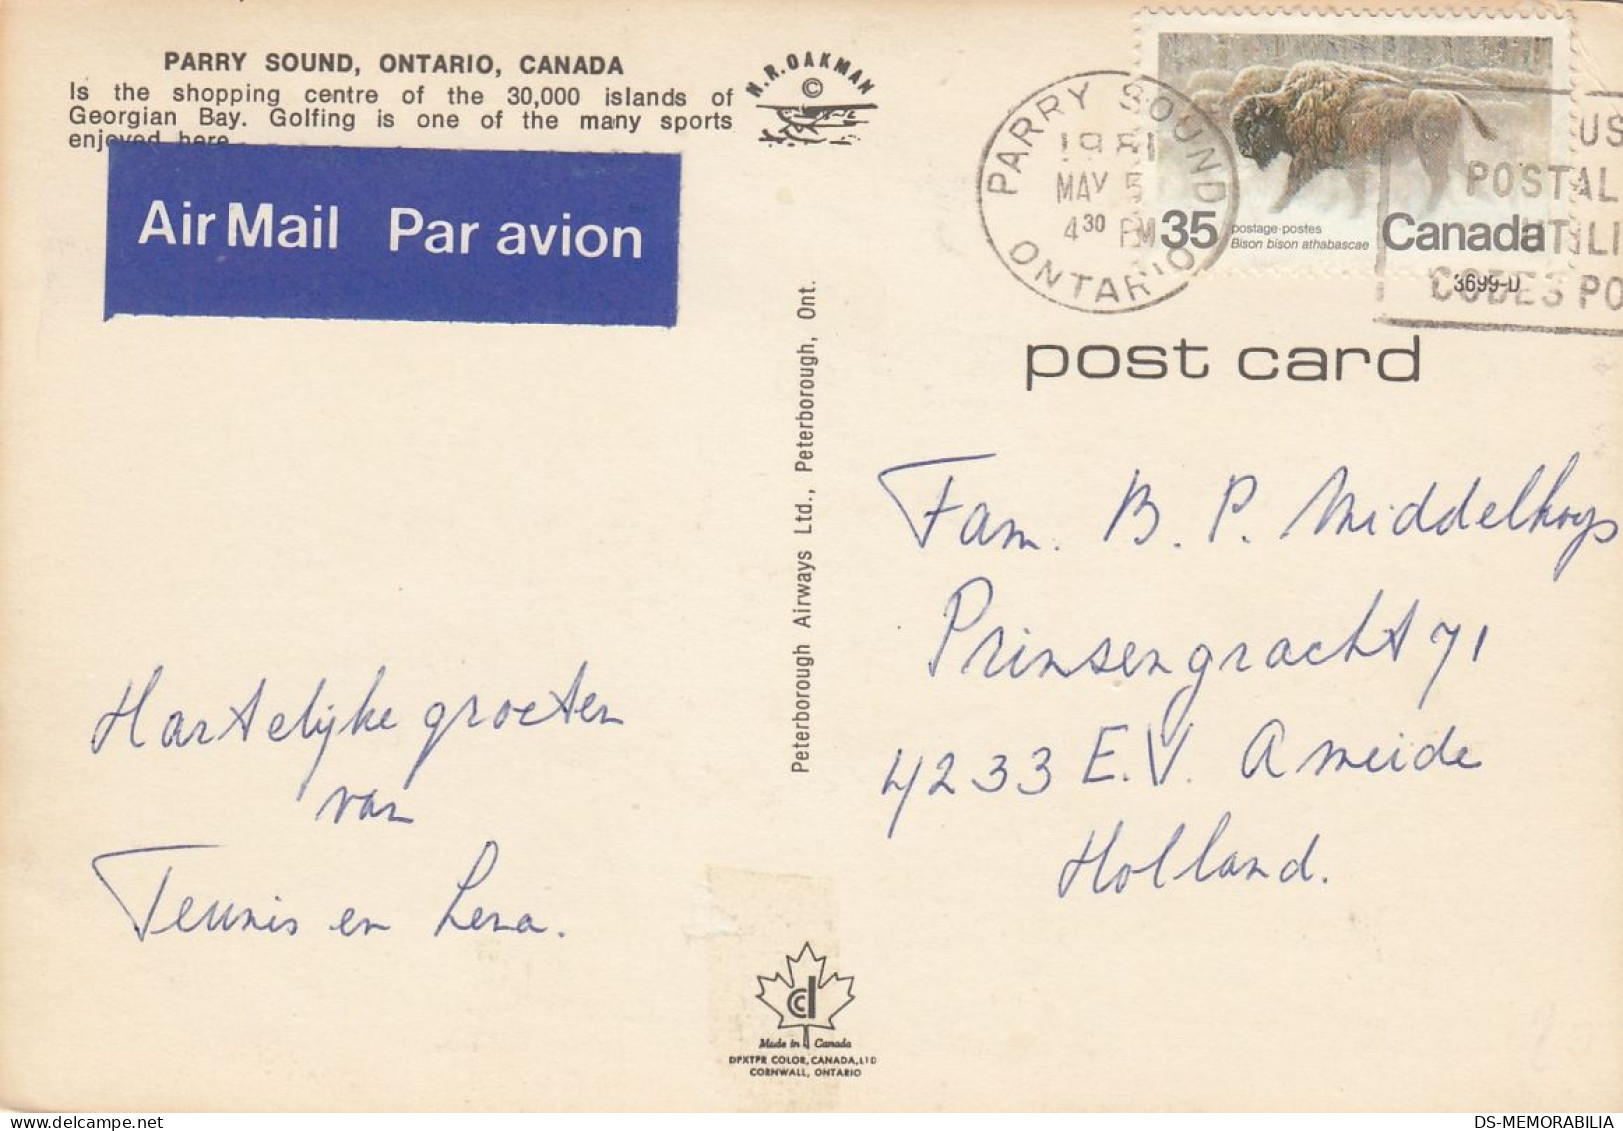 PARRY SOUND, ONTARIO, CANADA
Is the shopping centre of the 30,000 islands of
Georgian Bay. Golfing is one of the many sports
enjoyed here.
H.R. OAKMAN
©
Air Mail Par avion
PARRY SOUND
1981
MAY 5
4 30 PM
ONTARIO
35
postage·postes
Bison bison athabascae
Canada
US
POSTAL
UTILI
CODES PO
3699-D
post card
Peterborough Airways Ltd., Peterborough, Ont.
Fam. B. P. Middelkoop
Prinsengracht 71
4233 E.V. Ameide
Holland.
Hartelijke groeten
van
Teunis en Lena.
Made in Canada
DEXTER COLOR, CANADA, LTD
CORNWALL, ONTARIO
DS-MEMORABILIA